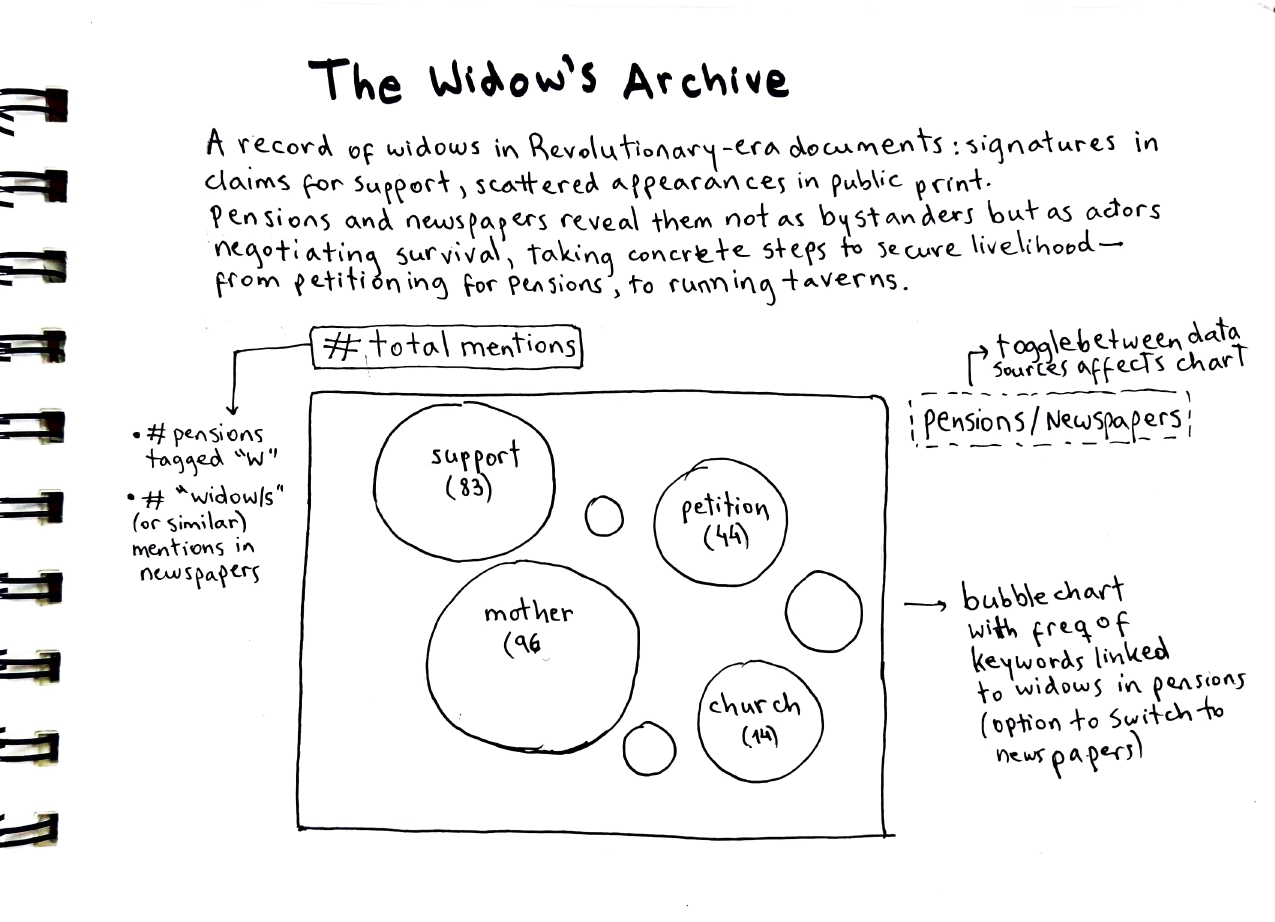 The Widow's Archive
A record of widows in Revolutionary-era documents: signatures in
claims for support, scattered appearances in public print.
Pensions and newspapers reveal them not as bystanders but as actors
negotiating survival, taking concrete steps to secure livelihood—
from petitioning for pensions, to running taverns.
# total mentions
• # pensions
tagged "W"
• # "widow/s"
(or similar)
mentions in
newspapers
support
(83)
petition
(44)
mother
(96
church
(14)
toggle between data
sources affects chart
Pensions/Newspapers
bubble chart
with freq of
keywords linked
to widows in pensions
(option to switch to
newspapers)